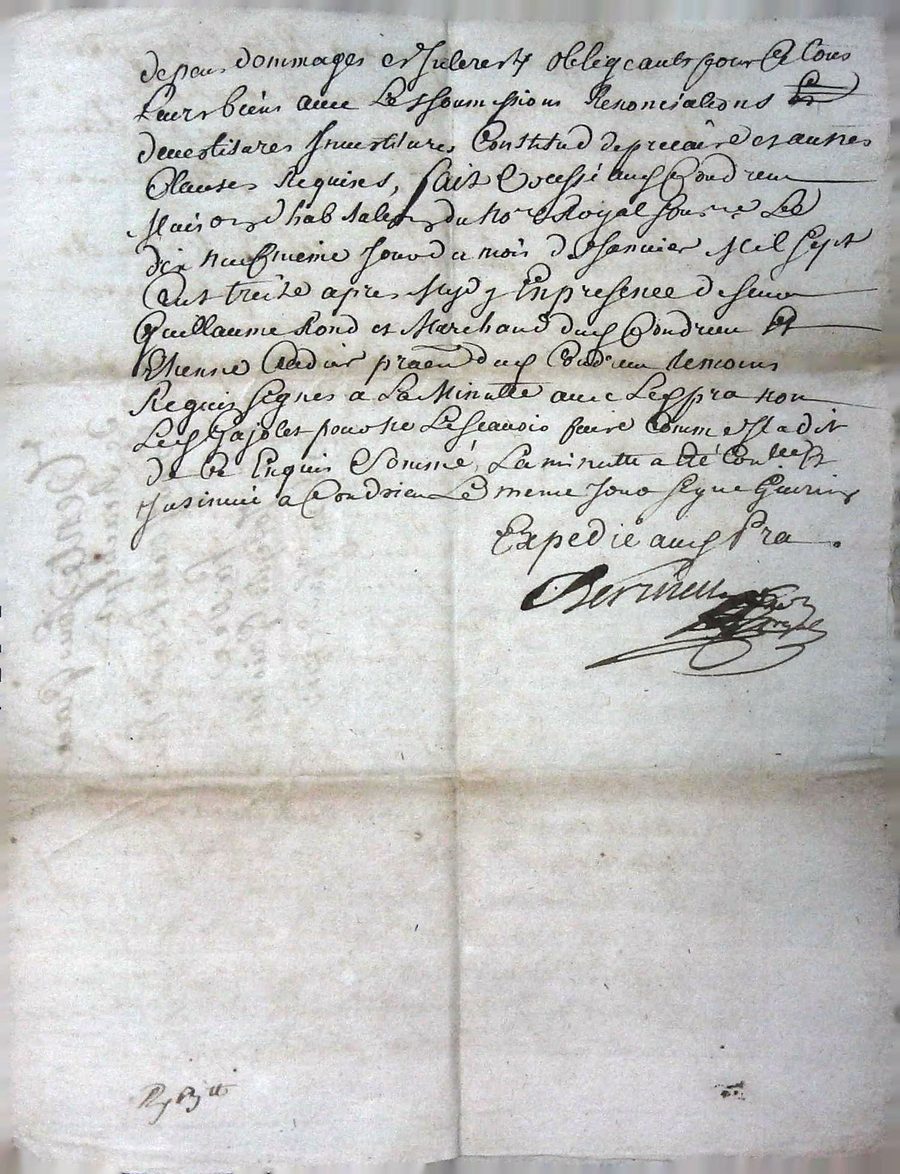 depens dommages et Interests obligeants pour ce tous
leurs biens avec Les soumissions Renonciations
devestitures Investitures Constitud de precaire et autres
Clauses Requises, fait et passé aud Condrieu
Maison d'hab du no.re Royal sous.né Le
dix neufvieme Jour du mois de Janvier Mil sept
Cent treize apres Mydy En presence de sieur
Guillaume Rond et Marchand dud Condrieu et
Etienne praen dud Condrieu temoins
Requis signes a La Minutte avec Led pra non
Led Jajolet pour ne Le scavoir faire Comme Il a dit
de ce Enquis Sommé, La minutte a eté Conllee
Insinuée a Condrieu Le meme Jour signe Guerin
Expedié aud Pra.